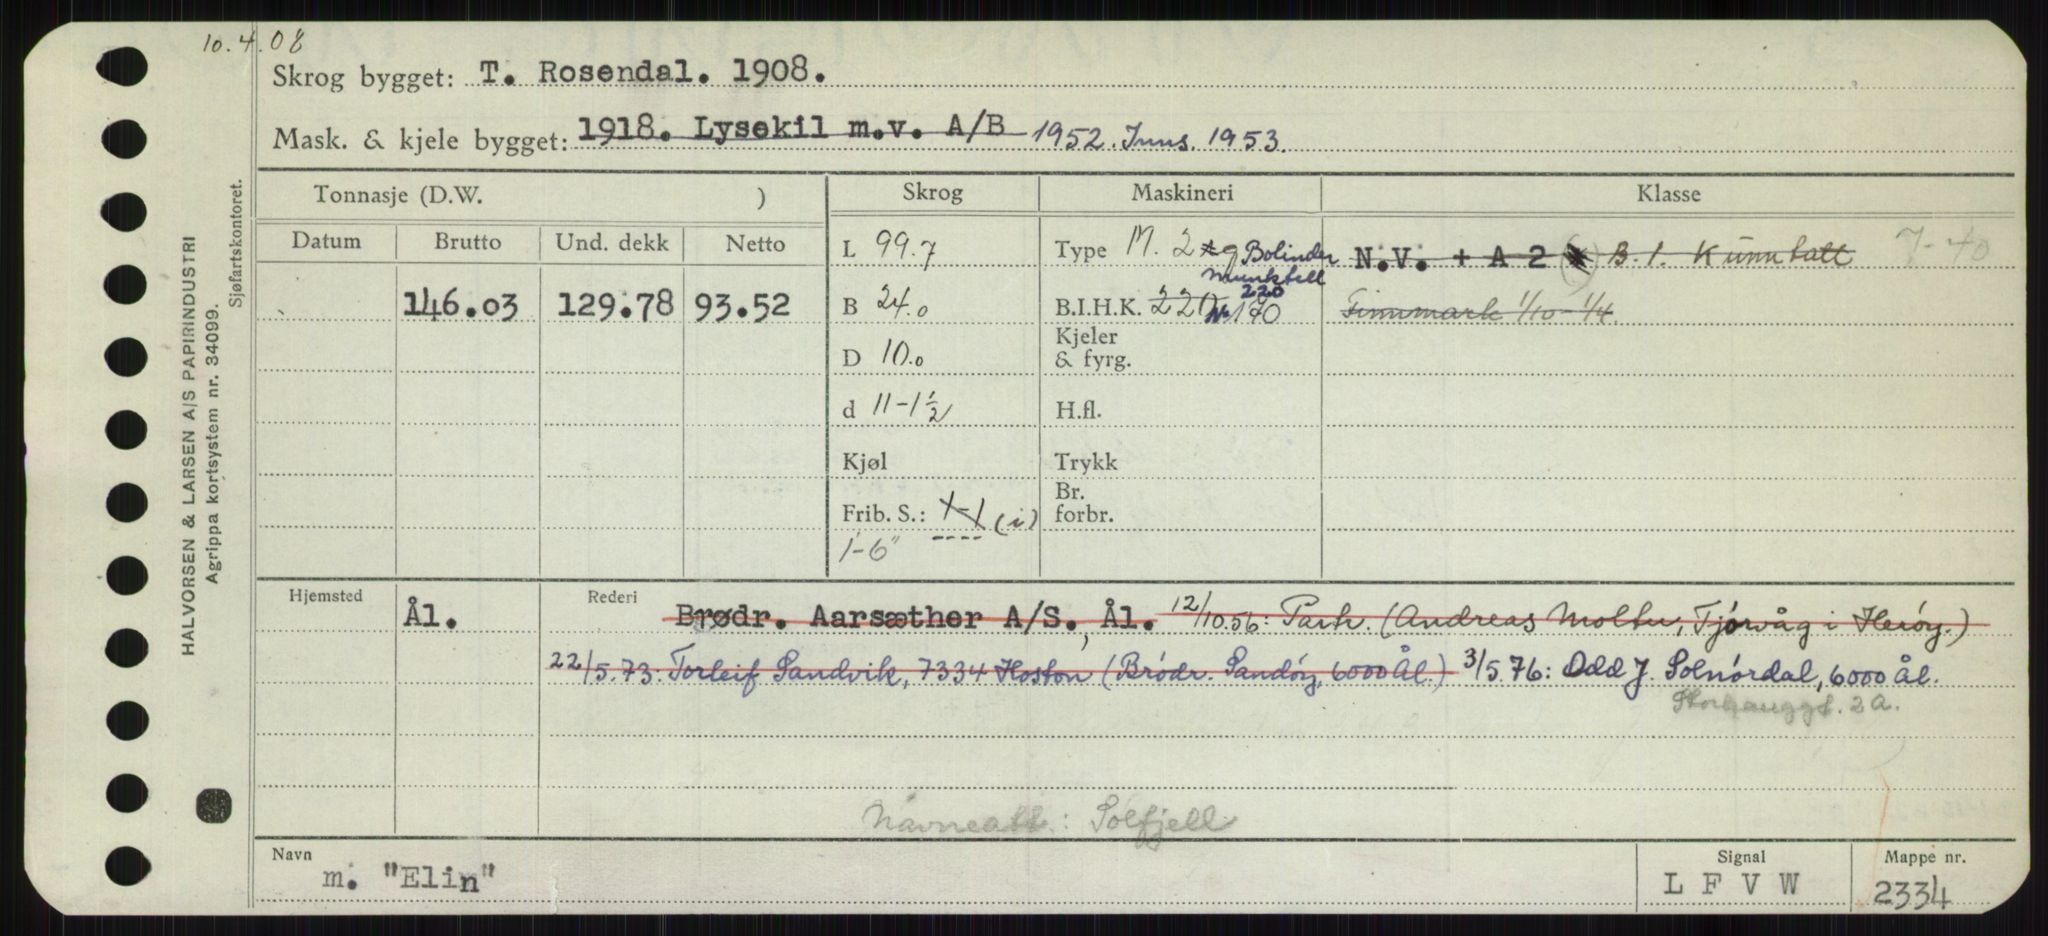 10.4.08
Skrog bygget: T. Rosendal. 1908.
Mask. & kjele bygget: 1918. Lysekil m.v. A/B 1952. Inns. 1953.
Tonnasje (D.W. ) Skrog Maskineri Klasse
Datum Brutto Und. dekk Netto
L 99.7 Type M. 2 Bolinder N.V. + A 2 B. 1. Kunn tatt 7-40
Munktell
146.03 129.78 93.52 B 24.0 B.I.H.K. 220 220 170 Finnmark 1/10 - 1/4.
D 10.0 Kjeler & fyrg.
d 11-1½ H.fl.
Kjøl Trykk
Frib. S.: (i) Br. forbr.
1'-6"
Hjemsted Ål. Rederi Brødr. Aarsæther A/S., Ål. 12/10.56: Partr. (Andreas Moltu, Tjörvåg i Heröy.)
22/5.73: Torleif Sandvik, 7334 Hoston (Brödr. Sandöy, 6000 Ål.) 3/5.76: Odd J. Solnördal, 6000 Ål.
Storhauggt. 2a.
Navneatt.: Solfjell
Navn m. "Elin" Signal L F V W Mappe nr. 2334
HALVORSEN & LARSEN A/S PAPIRINDUSTRI
Agrippa kortsystem nr. 34099.
Sjøfartskontoret.